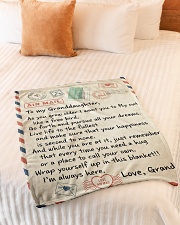 AIR MAIL
To my Granddaughter,
As you grow older I want you to fly out
like a free bird.
Go forth and pursue all your dreams.
Live life to the fullest
and make sure that your happiness
is second to none.
And while you are at it, just remember
that every time you need a hug
or a place to call your own.
Wrap yourself up in this blanket!!
I'm always here.
Love, Grand